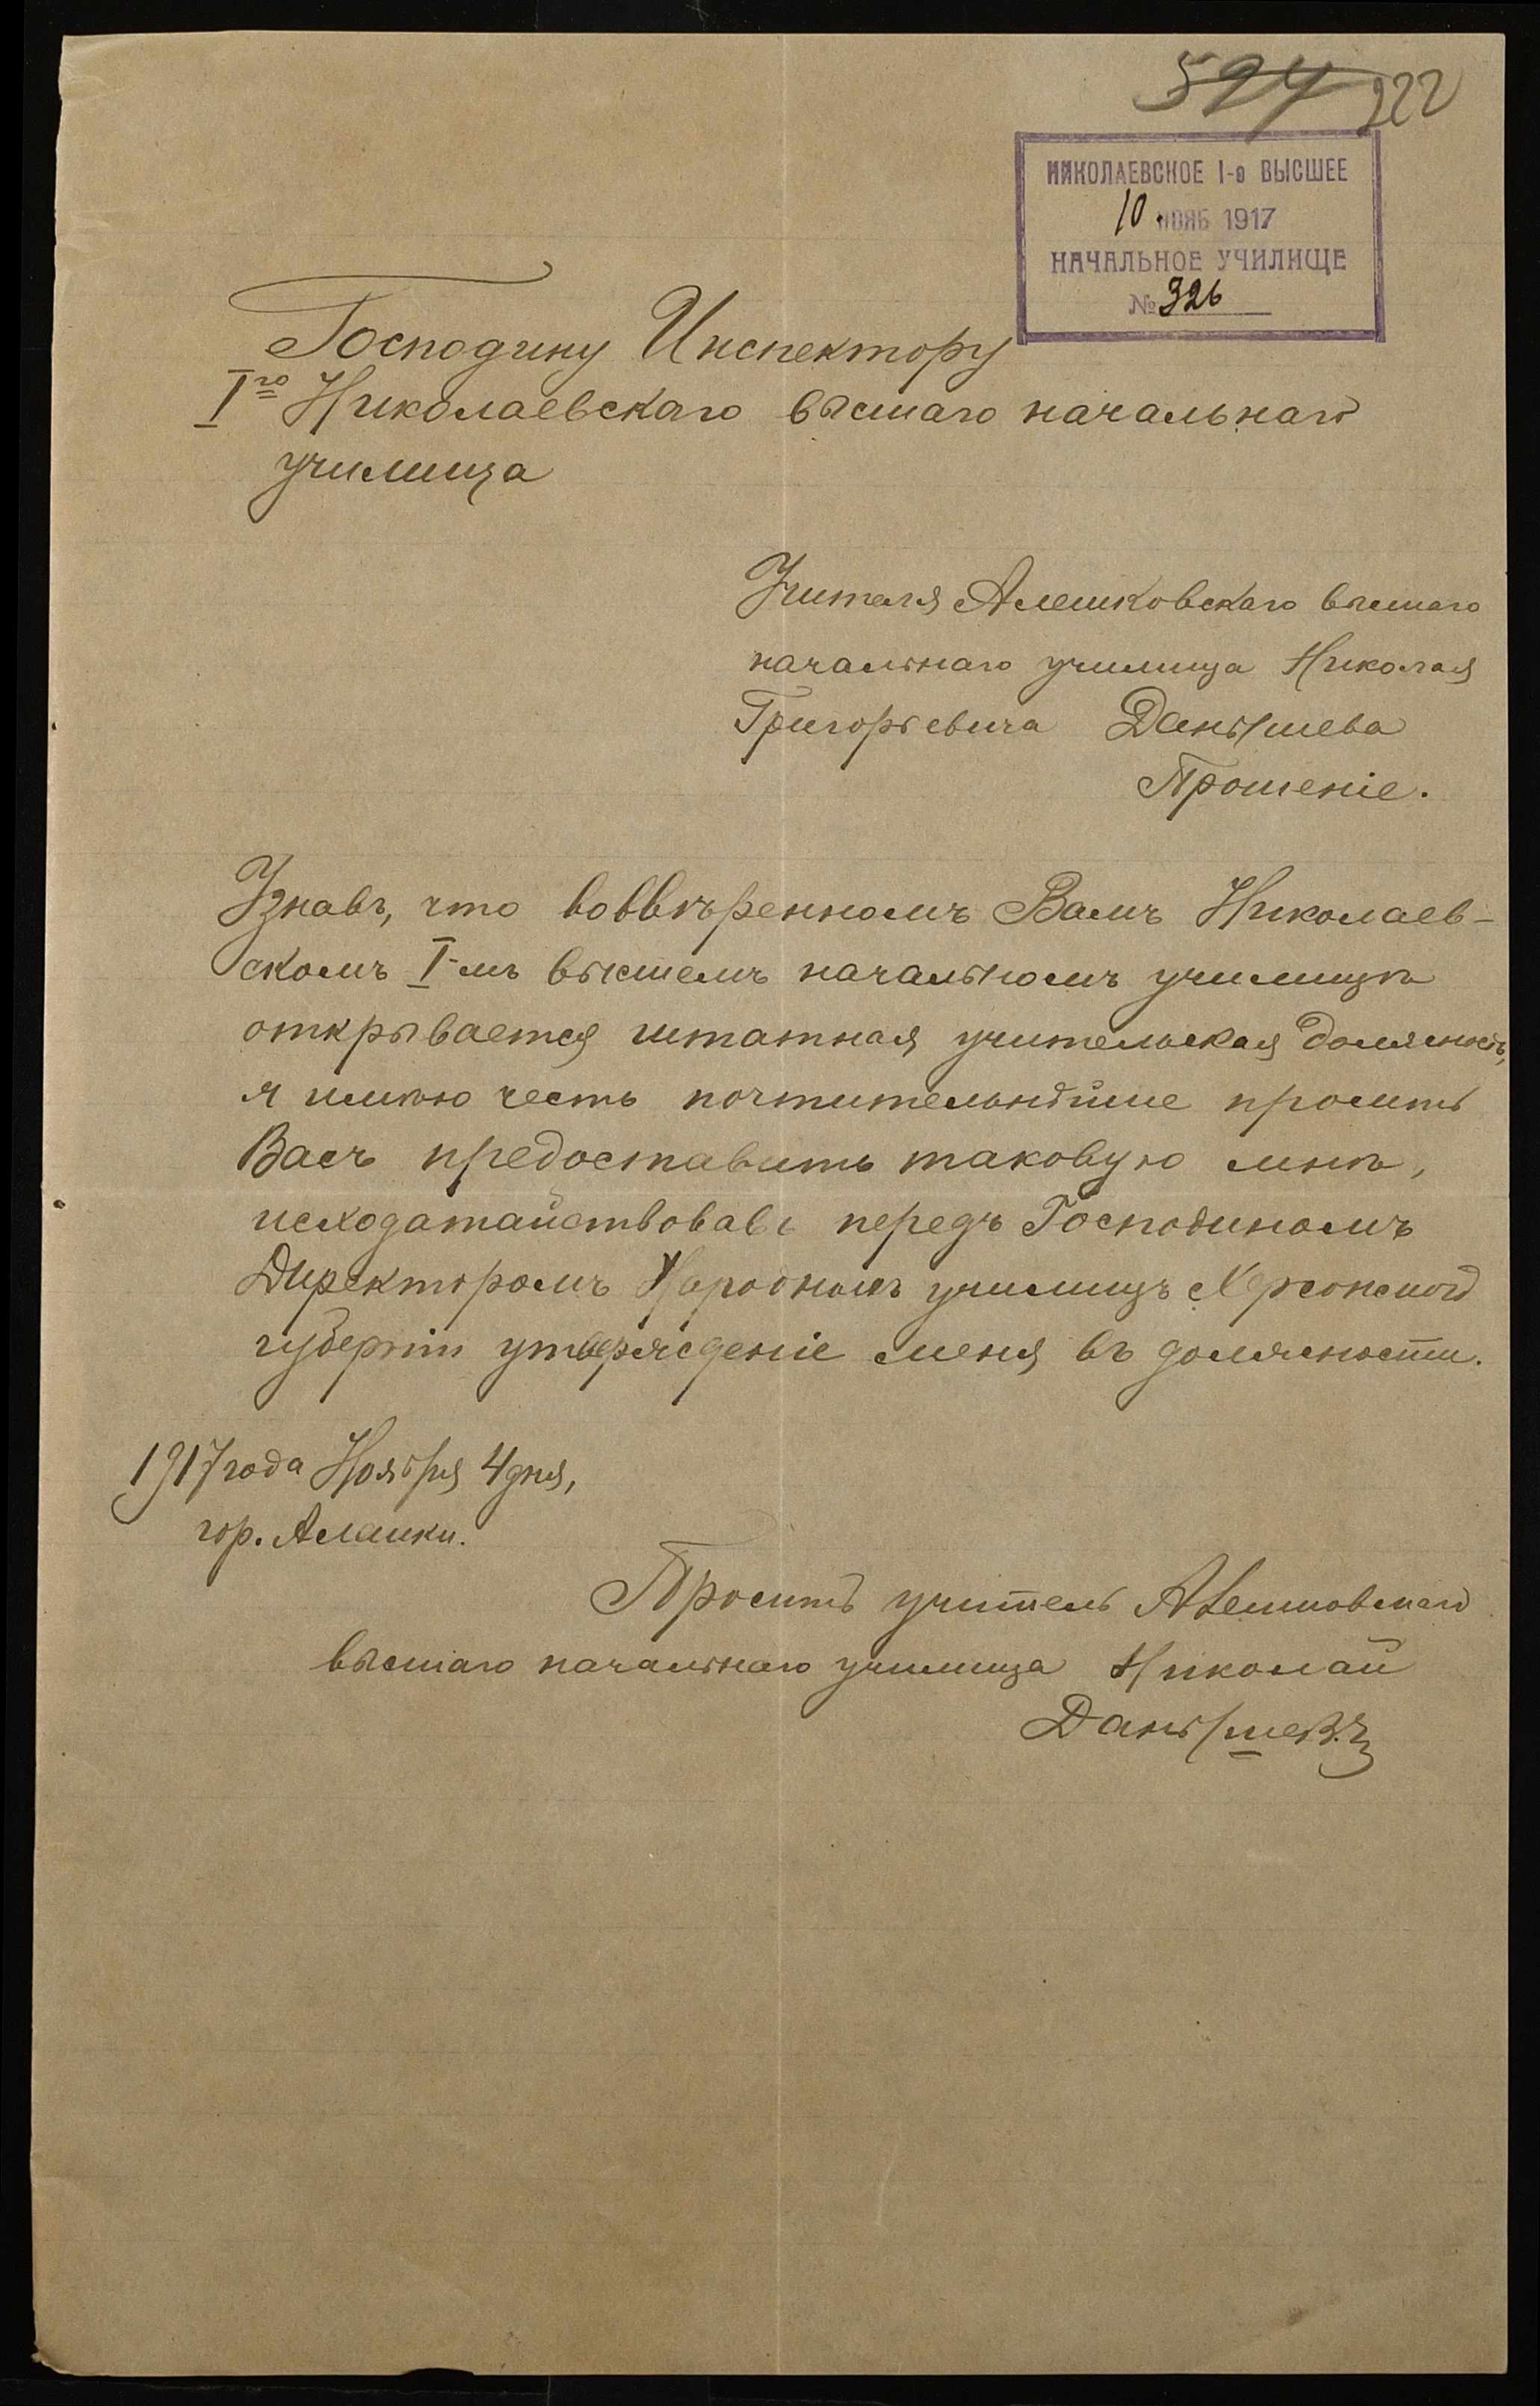 524 222
НИКОЛАЕВСКОЕ I-е ВЫСШЕЕ
10 НОЯБ 1917
НАЧАЛЬНОЕ УЧИЛИЩЕ
№ 326
Господину Инспектору
Iго Николаевскаго высшаго начальнаго
училища
Учителя Алешковскаго высшаго
начальнаго училища Николая
Григорьевича Даньшева
Прошеніе.
Узнавъ, что вовввѣренномъ Вамъ Николаев-
скомъ I-мъ высшемъ начальномъ училищѣ
открывается штатная учительская должность,
я имѣю честь почтительнѣйше просить
Васъ предоставить таковую мнѣ,
исходатайствовавъ передъ Господиномъ
Директоромъ Народныхъ училищъ Херсонской
губерніи утвержденіе меня въ должности.
1917 года Ноября 4 дня,
гор. Алешки.
Проситъ учитель Алешковскаго
высшаго начальнаго училища Николай
Даньшевъ